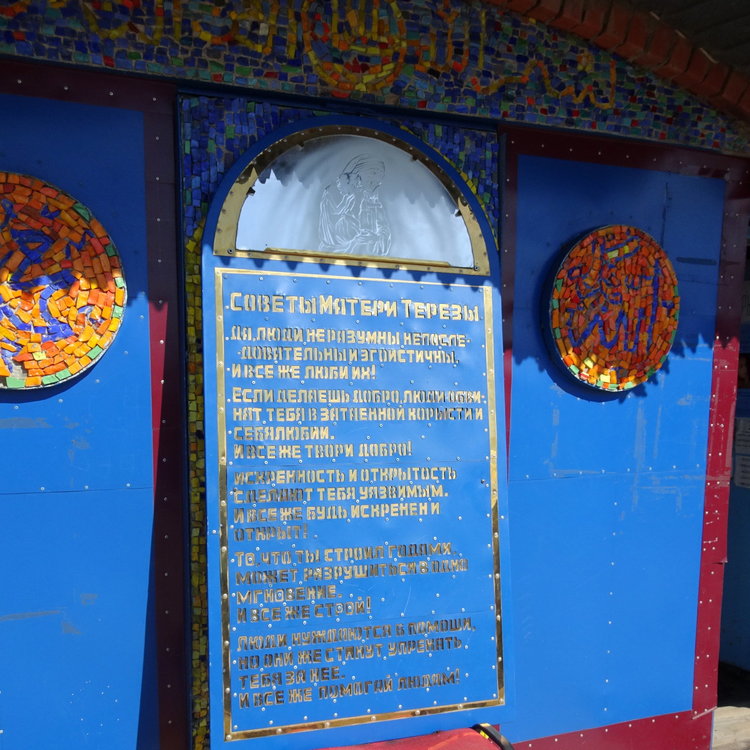 СОВЕТЫ МАТЕРИ ТЕРЕЗЫ
ДА, ЛЮДИ НЕРАЗУМНЫ, НЕПОСЛЕ-
ДОВАТЕЛЬНЫ И ЭГОИСТИЧНЫ,
И ВСЕ ЖЕ ЛЮБИ ИХ!
ЕСЛИ ДЕЛАЕШЬ ДОБРО, ЛЮДИ ОБВИ-
НЯТ ТЕБЯ В ЗАТАЕННОЙ КОРЫСТИ И
СЕБЯЛЮБИИ.
И ВСЕ ЖЕ ТВОРИ ДОБРО!
ИСКРЕННОСТЬ И ОТКРЫТОСТЬ
СДЕЛАЮТ ТЕБЯ УЯЗВИМЫМ.
И ВСЕ ЖЕ БУДЬ ИСКРЕНЕН И
ОТКРЫТ!
ТО, ЧТО ТЫ СТРОИЛ ГОДАМИ
МОЖЕТ РАЗРУШИТЬСЯ В ОДНО
МГНОВЕНИЕ.
И ВСЕ ЖЕ СТРОЙ!
ЛЮДИ НУЖДАЮТСЯ В ПОМОЩИ,
НО ОНИ ЖЕ СТАНУТ УПРЕКАТЬ
ТЕБЯ ЗА НЕЕ.
И ВСЕ ЖЕ ПОМОГАЙ ЛЮДЯМ!